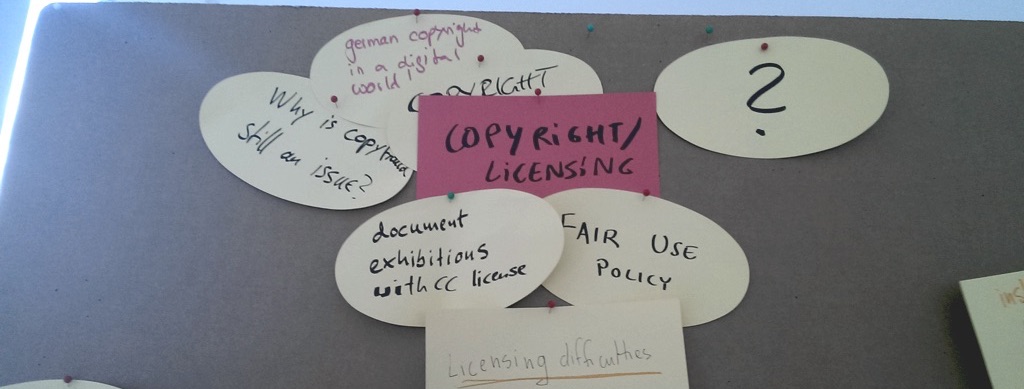 german copyright
in a digital
world!
COPYRIGHT
?
Why is copyright
still an issue?
COPYRiGHT/
LiCENSiNG
document
exhibitions
with CC license
FAIR USE
POLICY
Licensing difficulties